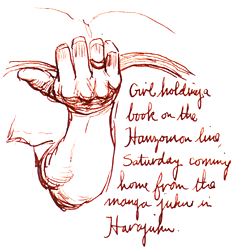 Girl holding a
book on the
Hanzomon line,
Saturday coming
home from the
manga juku in
Harajuku.